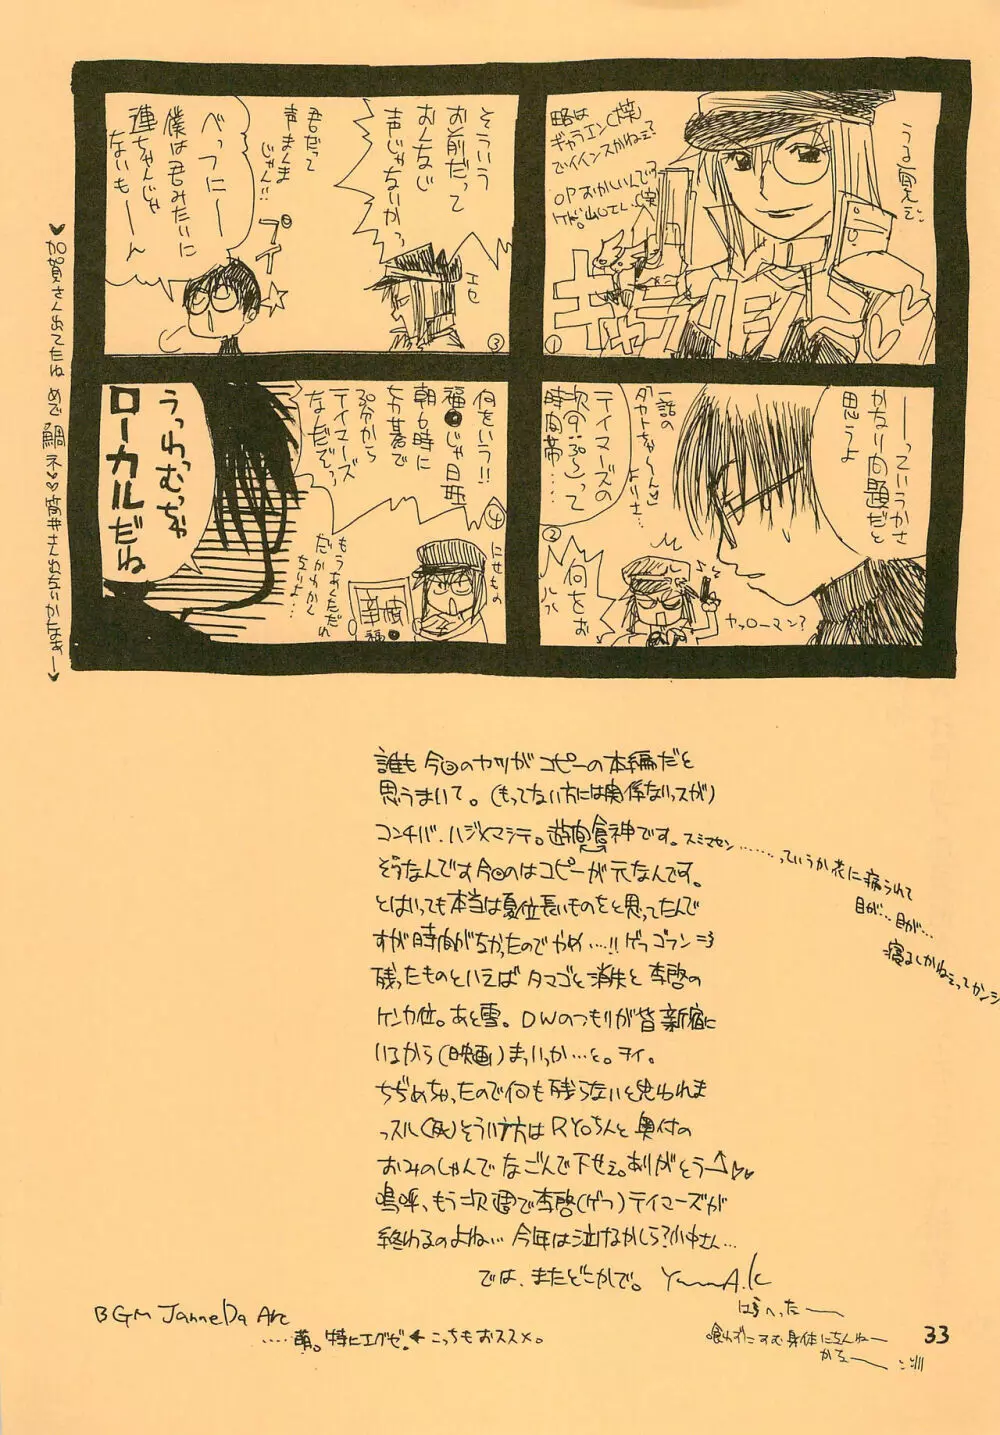 うる覚えで。
略は
ギャラエン(笑)
でイインスかねぇ?
OPおかしいんで
ギャラクシーエンジェル
①
――っていうかさ
かなり問題だと
思うよ
一話の
「タカトちゃ〜ん♡」
よりさ…
テイマーズの
次の…ぷ〜って
時間帯……
②
何をお
ハフハフ
ヤッローマン?
そういう
お前だって
おんなじ
声じゃないかっ
エセ
君だって
声まんま
じゃん!!
べっつに――
僕は君みたいに
連ちゃんじゃ
ないも――ん
プイ
③
何をいう!!
福●じゃ日曜
朝6時に
30分から
テイマーズ
なんだぞっ
④
にせもの
もうあくだれ
だかわかん
ないよ…
幸福
うっわむっちゃ
ローカルだね
♥加賀さん出てたね めで鯛ネ♡♡筒井さん出ないかなぁ―♥
誰も今回のヤツがコピーの本編だと
思うまいて。(もってない方には関係ないっスが)
コンチバ、ハジメマシテ。遊演倉神です。スミマセン………っていうか花に病られて
目が…目が…
寝るしかねぇってカンジ
そうなんです今回のはコピーが元なんです。
とはいっても本当は夏位長いものをと思ってたんで
すが時間がなかったのでやめ…!!ゲフゴフン=3
残ったものといえばタマゴと消失と李啓の
ケンカ位。あと雪。DWのつもりが皆新宿に
いるから(映画)まっいっか…と。ヲイ。
ちぢめちゃったので何も残らないと思われま
っスル(死)そういう方はRYOちんと奥付の
おみのしゃんでなごんで下せぇ。ありがとう♡♡
嗚呼、もう次週で李啓(ゲフ)テイマーズが
終わるのよね… 今年は泣けるかしら?小中さん…
では、またどこかで。
はらへった――
喰わずにすむ身体になんねー
かな――
BGM Janne Da Arc
……萌。特にエグゼ!←こっちもおススメ。
33